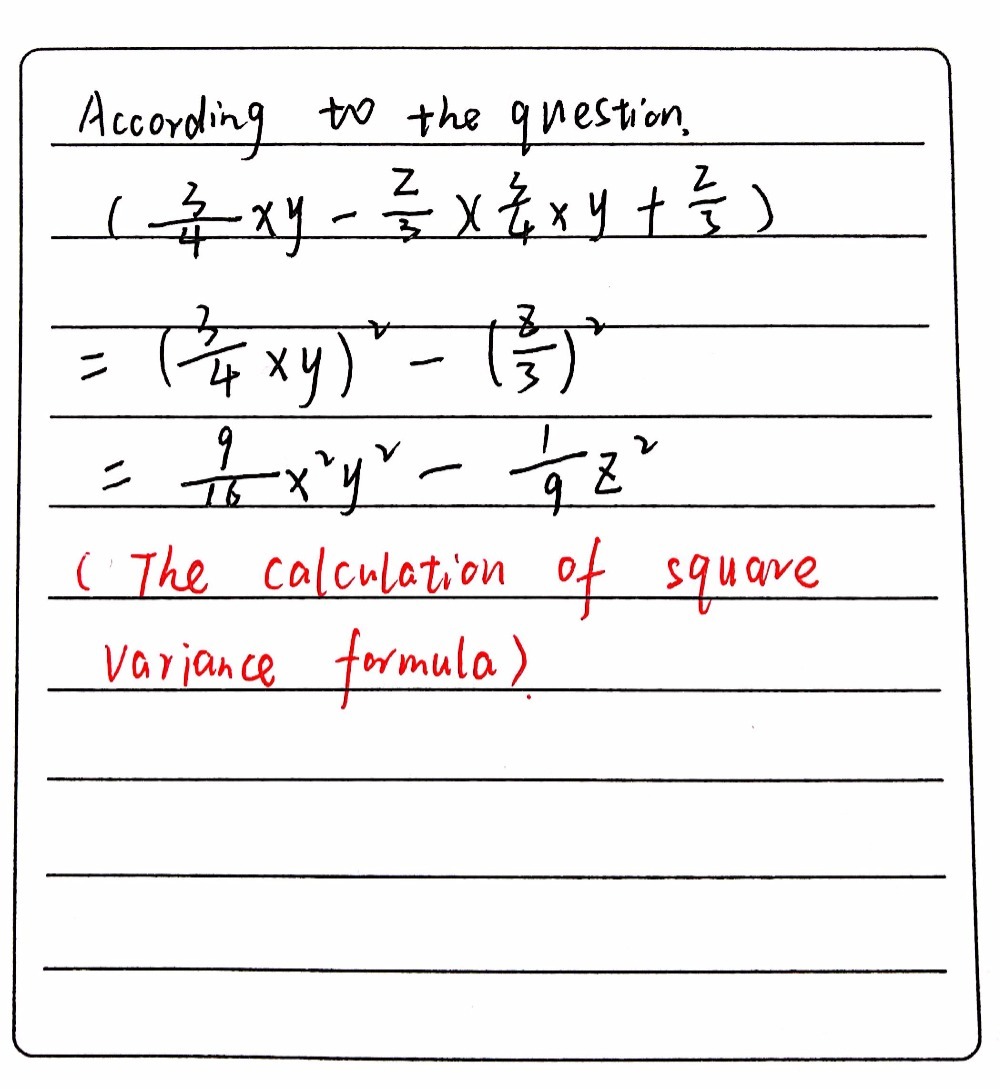 According to the question.
( 3/4 xy - z/3 )( 3/4 xy + z/3 )
= ( 3/4 xy )² - ( z/3 )²
= 9/16 x²y² - 1/9 z²
( The calculation of square
variance formula ).